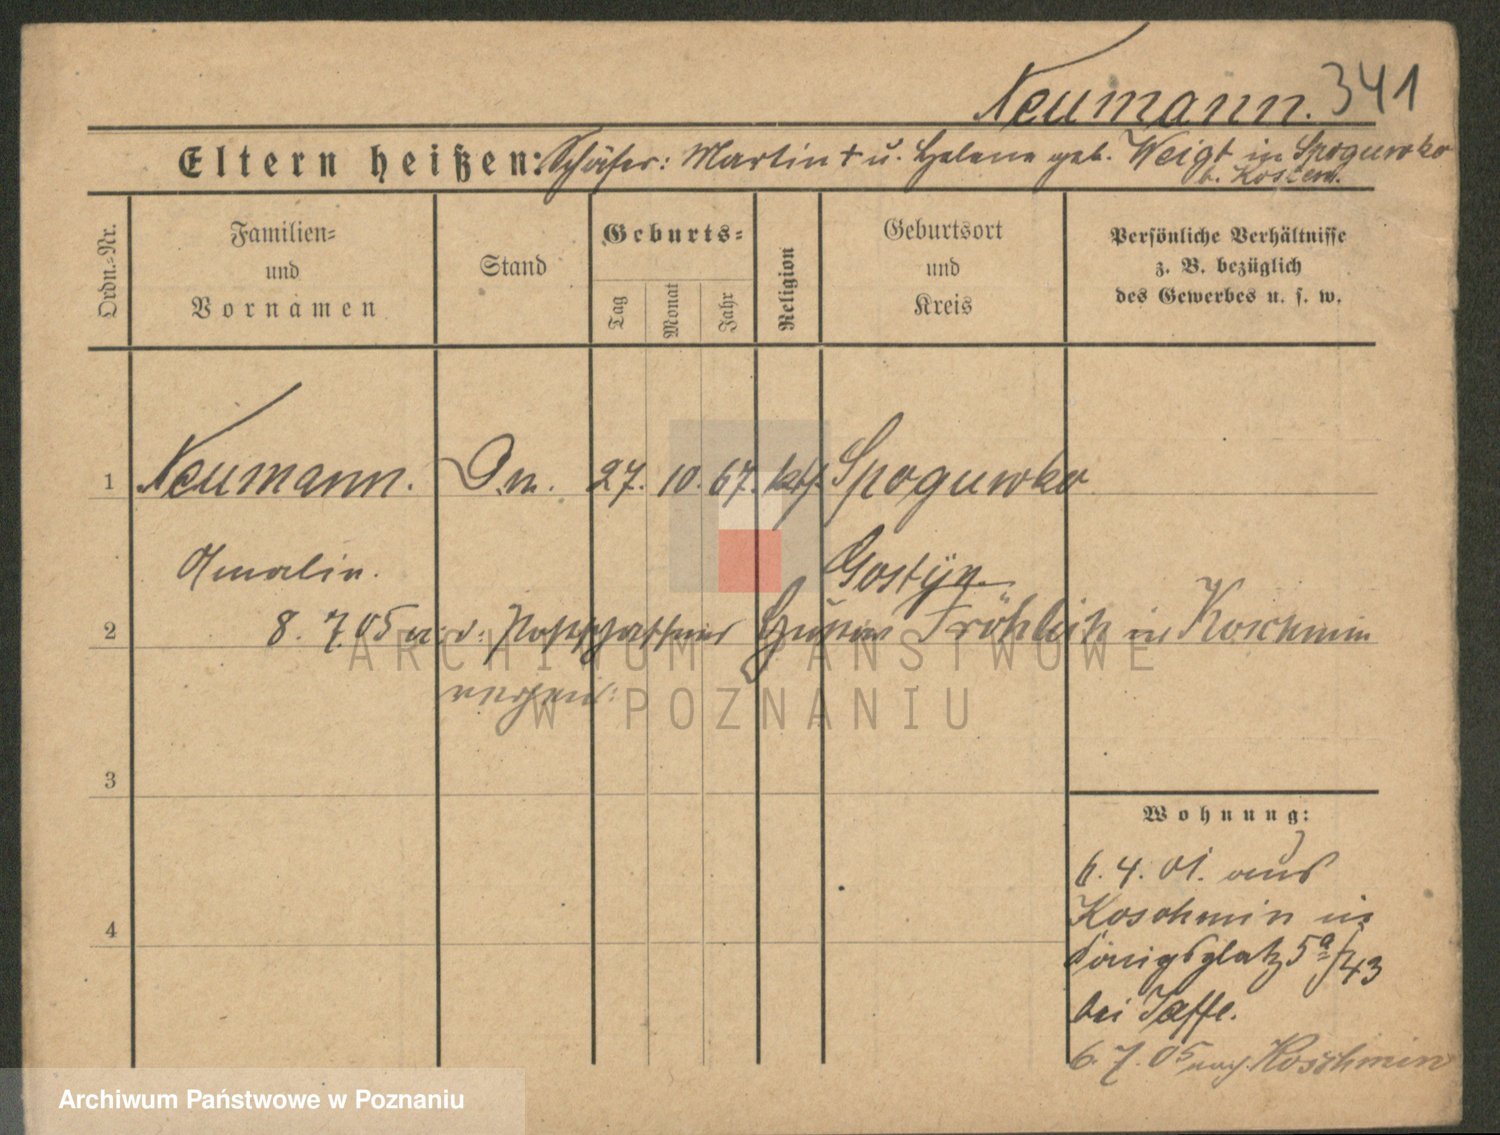 Neumann. 341
Eltern heißen: Schäfer: Martin † u. Helene geb. Weigt in Spoguwko
b. Kosten.
Ordn.-Nr.
Familien-
und
Vornamen
Stand
Geburts-
Tag
Monat
Jahr
Religion
Geburtsort
und
Kreis
Persönliche Verhältnisse
z. B. bezüglich
des Gewerbes u. s. w.
1 Neumann. 27. 10. 67. kth. Spoguwko
Amalie. Gostÿn
2 8. 7. 05 Fröhlich in Koschmin
ARCHIWUM PAŃSTWOWE
W POZNANIU
3
Wohnung:
6. 4. 01. aus
Koschmin in
4
Königsplatz 5a/43
bei Jaffe.
6. 7. 05 nach Koschmin
Archiwum Państwowe w Poznaniu